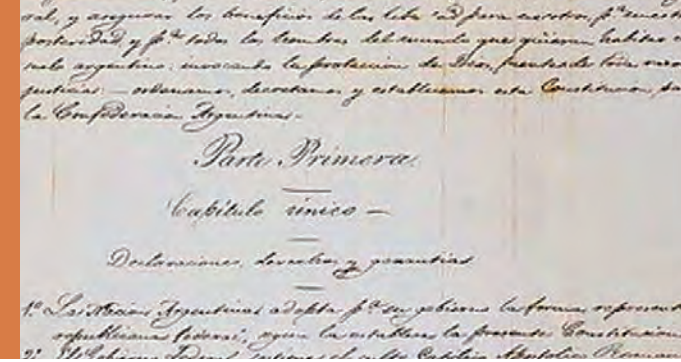 ral, y asegurar los beneficios de la libertad para nosotros, pª nuestra
posteridad, y pª todos los hombres del mundo que quieran habitar el
suelo argentino: invocando la proteccion de Dios, fuente de toda razon
justicia: — ordenamos, decretamos y establecemos esta Constitucion, pa
la Confederacion Argentina.-
Parte Primera.
Capítulo único —
Declaraciones, derechos y garantias
1º La Nacion Argentina adopta pª su gobierno la forma represent
republicana federal, segun la establece la presente Constitucion
2º El Gobierno federal sostiene el culto Católico Apostólico Romano